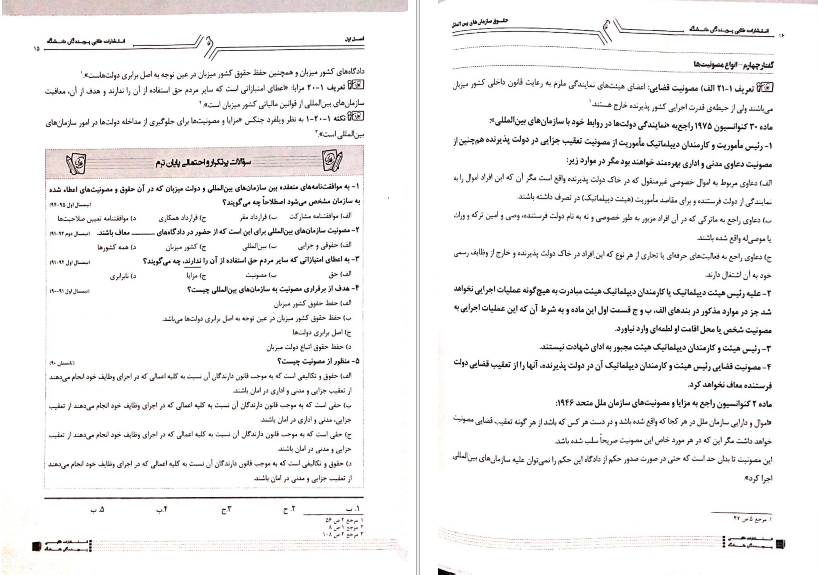 ۱۶
انتشارات طلایی پویندگان دانشگاه
حقوق سازمان های بین الملل
گفتار چهارم - انواع مصونیت‌ها
تعریف ۱-۲۱ الف) مصونیت قضایی: اعضای هیئت‌های نمایندگی ملزم به رعایت قانون داخلی کشور میزبان
می‌باشند ولی از حیطه‌ی قدرت اجرایی کشور پذیرنده خارج هستند.۱
ماده ۳۰ کنوانسیون ۱۹۷۵ راجع به «نمایندگی دولت‌ها در روابط خود با سازمان‌های بین‌المللی»:
۱- رئیس مأموریت و کارمندان دیپلماتیک مأموریت از مصونیت تعقیب جزایی در دولت پذیرنده همچنین از
مصونیت دعاوی مدنی و اداری بهره‌مند خواهند بود مگر در موارد زیر:
الف) دعاوی مربوط به اموال خصوصی غیرمنقول که در خاک دولت پذیرنده واقع است مگر آن که این افراد اموال را به
نمایندگی از دولت فرستنده و برای مقاصد مأموریت (هیئت دیپلماتیک) در تصرف داشته باشند.
ب) دعاوی راجع به ماترکی که در آن افراد مزبور به طور خصوصی و نه به نام دولت فرستنده، وصی و امین ترکه و وراث
یا موصی‌له واقع شده باشند.
ج) دعاوی راجع به فعالیت‌های حرفه‌ای یا تجاری از هر نوع که این افراد در خاک دولت پذیرنده و خارج از وظایف رسمی
خود به آن اشتغال دارند.
۲- علیه رئیس هیئت دیپلماتیک یا کارمندان دیپلماتیک هیئت مبادرت به هیچ‌گونه عملیات اجرایی نخواهد
شد جز در موارد مذکور در بندهای الف، ب و ج قسمت اول این ماده و به شرط آن که این عملیات اجرایی به
مصونیت شخص یا محل اقامت او لطمه‌ای وارد نیاورد.
۳- رئیس هیئت و کارمندان دیپلماتیک هیئت مجبور به ادای شهادت نیستند.
۴- مصونیت قضایی رئیس هیئت و کارمندان دیپلماتیک آن در دولت پذیرنده، آنها را از تعقیب قضایی دولت
فرستنده معاف نخواهد کرد.
ماده ۲ کنوانسیون راجع به مزایا و مصونیت‌های سازمان ملل متحد ۱۹۴۶:
«اموال و دارایی سازمان ملل در هر کجا که واقع شده باشد و در دست هر کس که باشد از هر گونه تعقیب قضایی مصونیت
خواهد داشت مگر این که در هر مورد خاص این مصونیت صریحاً سلب شده باشد.
این مصونیت تا بدان حد است که حتی در صورت صدور حکم از دادگاه این حکم را نمی‌توان علیه سازمان‌های بین‌المللی
اجرا کرد»
۱ مرجع ۵ ص ۴۷
فصل اول
انتشارات طلایی پویندگان دانشگاه
۱۵
دادگاه‌های کشور میزبان و همچنین حفظ حقوق کشور میزبان در عین توجه به اصل برابری دولت‌هاست».۱
تعریف ۱-۲۰ مزایا: «اعطای امتیازاتی است که سایر مردم حق استفاده از آن را ندارند و هدف از آن، معافیت
سازمان‌های بین‌المللی از قوانین مالیاتی کشور میزبان است».۲
نکته ۱-۲۰-۱ به نظر ویلفرد جنکس «مزایا و مصونیت‌ها برای جلوگیری از مداخله دولت‌ها در امور سازمان‌های
بین‌المللی است».۳
سؤالات پرتکرار و احتمالی پایان ترم
۱- به موافقت‌نامه‌های منعقده بین سازمان‌های بین‌المللی و دولت میزبان که در آن حقوق و مصونیت‌های اعطاء شده
به سازمان مشخص می‌شود اصطلاحاً چه می‌گویند؟ (نیمسال اول ۹۵-۹۴)
الف) موافقتنامه مشارکت ب) قرارداد مقر ج) قرارداد همکاری د) موافقتنامه تعیین صلاحیت‌ها
۲- مصونیت سازمان‌های بین‌المللی برای این است که از حضور در دادگاه‌های ______ معاف باشند. (نیمسال دوم ۹۳-۹۲)
الف) حقوقی و جزایی ب) بین‌المللی ج) کشور میزبان د) همه کشورها
۳- به اعطای امتیازاتی که سایر مردم حق استفاده از آن را ندارند، چه می‌گویند؟ (نیمسال اول ۹۲-۹۱)
الف) حق ب) مصونیت ج) مزایا د) نابرابری
۴- هدف از برقراری مصونیت به سازمان‌های بین‌المللی چیست؟ (نیمسال اول ۹۱-۹۰)
الف) حفظ حقوق کشور میزبان
ب) حفظ حقوق کشور میزبان در عین توجه به اصل برابری دولت‌ها می‌باشد.
ج) اصل برابری دولت‌ها
د) حفظ حقوق اتباع دولت میزبان
۵- منظور از مصونیت چیست؟ (تابستان ۹۰)
الف) حقوق و تکالیفی است که به موجب قانون دارندگان آن نسبت به کلیه اعمالی که در اجرای وظایف خود انجام می‌دهند
از تعقیب جزایی و مدنی و اداری در امان باشند.
ب) حقی است که به موجب قانون دارندگان آن نسبت به کلیه اعمالی که در اجرای وظایف خود انجام می‌دهند از تعقیب
جزایی، مدنی و اداری در امان باشند.
ج) حقی است که به موجب قانون دارندگان آن نسبت به کلیه اعمالی که در اجرای وظایف خود انجام می‌دهند از تعقیب
جزایی و مدنی در امان باشند.
د) حقوق و تکالیفی است که به موجب قانون دارندگان آن نسبت به کلیه اعمالی که در اجرای وظایف خود انجام می‌دهند
از تعقیب جزایی و مدنی در امان باشند.
۱. ب ۲. ج ۳. ج ۴. ب ۵. ب
۱ مرجع ۲ ص ۵۶
۲ مرجع ۱ ص ۸
۳ مرجع ۲ ص ۱۰۸